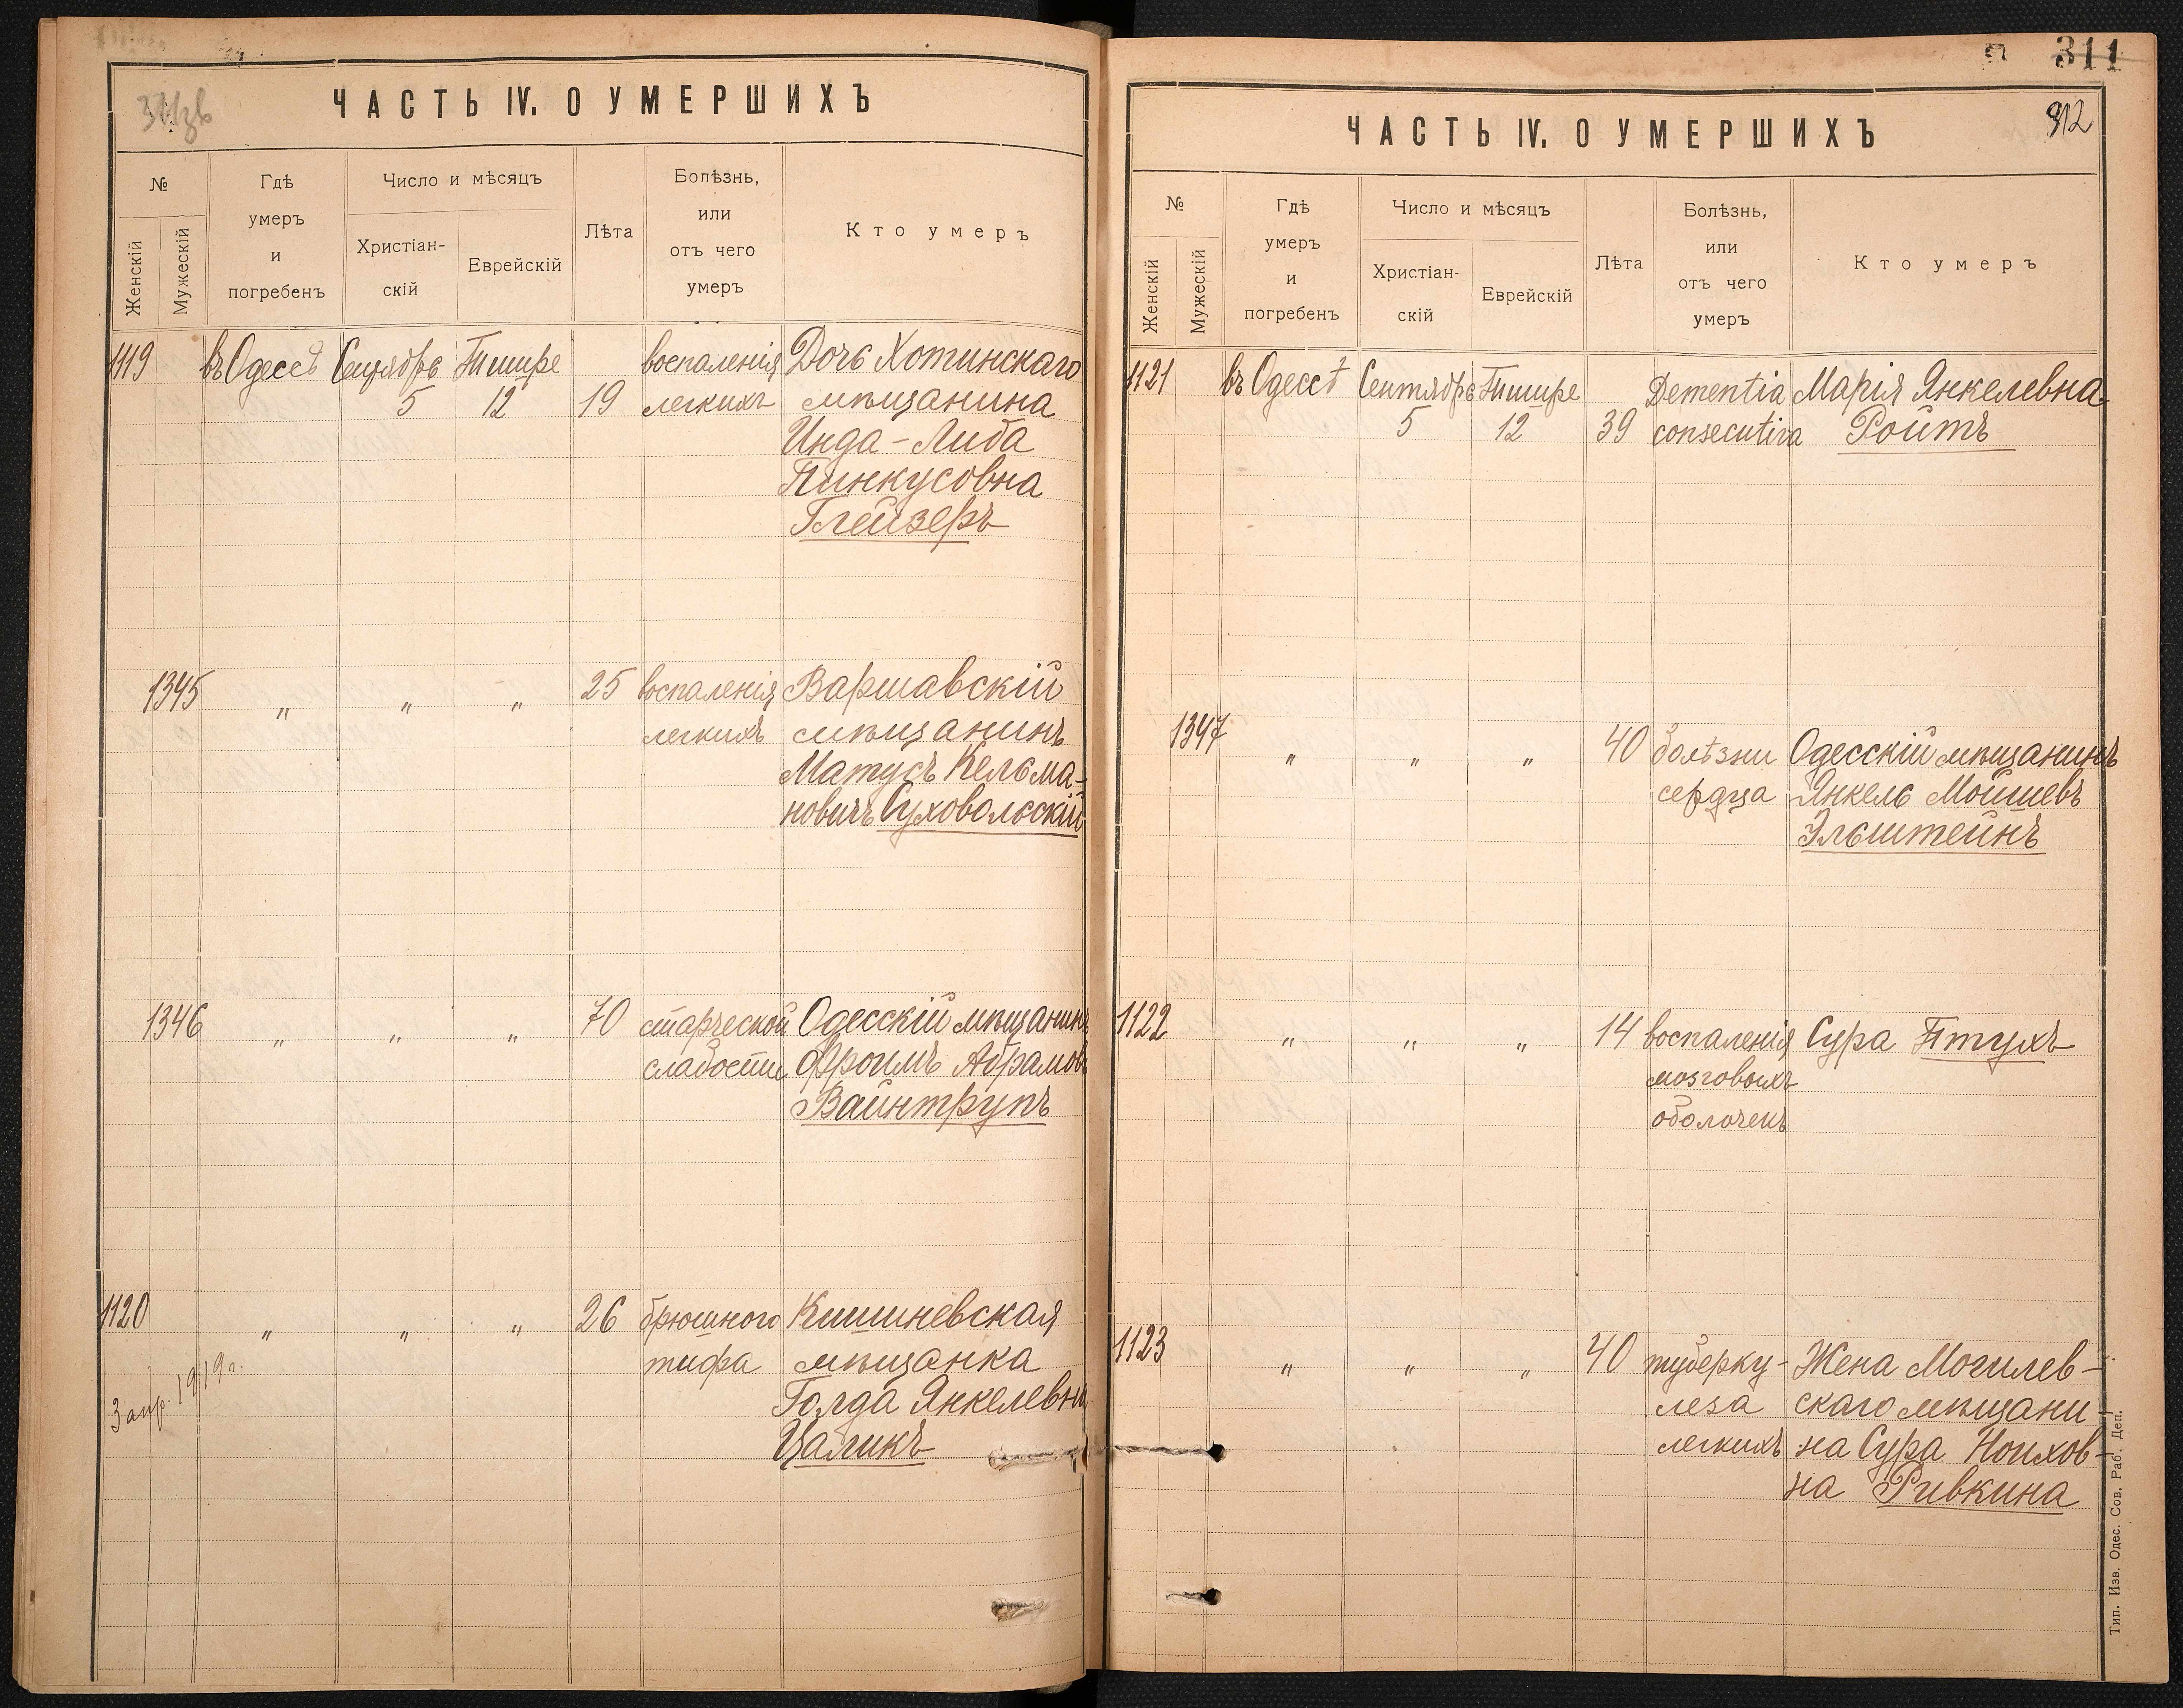 ЧАСТЬ IV. О УМЕРШИХЪ
№
Женскій
Мужескій
Гдѣ
умеръ
и
погребенъ
Число и мѣсяцъ
Христіан-
скій
Еврейскій
Лѣта
Болѣзнь,
или
отъ чего
умеръ
Кто умеръ
1119 въ Одессѣ Сентябрь Тишре воспаленія Дочь Хотинскаго
5 12 19 легкихъ мѣщанина
Инда-Либа
Пинкусовна
Глейзеръ
1345 " " " 25 воспаленія Варшавскій
легкихъ мѣщанинъ
Матусъ Кельма-
новичъ Суховольскій
1346 " " " 70 старческой Одесскій мѣщанинъ
слабости Фроимъ Абрамовъ
Вайнтрупъ
1120 " " " 26 брюшного Кишиневская
тифа мѣщанка
Голда Янкелевна
Цаликъ
3 апр. 1919 г.
311
312
ЧАСТЬ IV. О УМЕРШИХЪ
№
Женскій
Мужескій
Гдѣ
умеръ
и
погребенъ
Число и мѣсяцъ
Христіан-
скій
Еврейскій
Лѣта
Болѣзнь,
или
отъ чего
умеръ
Кто умеръ
1121 въ Одессѣ Сентябрь Тишре Dementia Марія Янкелевна
5 12 39 consecutiva Ройтъ
1347 " " " 40 болѣзни Одесскій мѣщанинъ
сердца Янкель Мошиевъ
Эльштейнъ
1122 " " " 14 воспаленія Сура Птухъ
мозговыхъ
оболочекъ
1123 " " " 40 туберку- Жена Могилев-
леза скаго мѣщани-
легкихъ на Сура Ноихов-
на Ривкина
Тип. Изв. Одес. Сов. Раб. Деп.